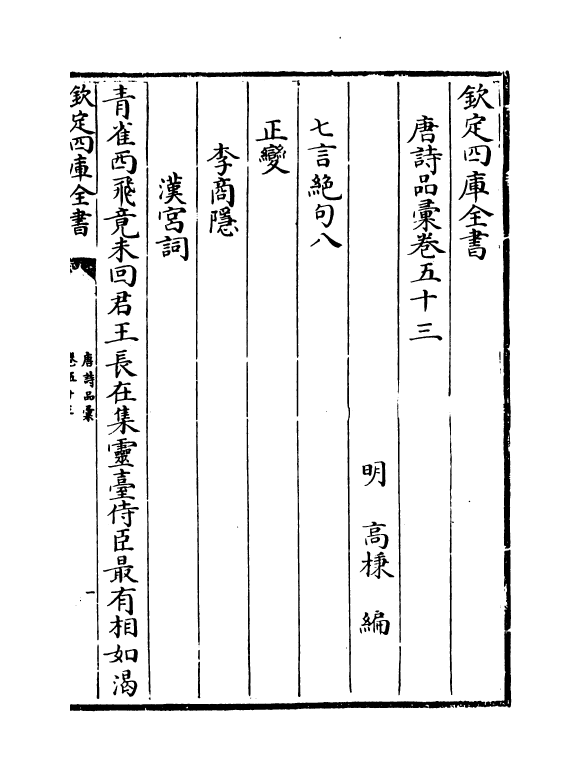 欽定四庫全書
唐詩品彙卷五十三
明 高棅 編
七言絶句八
正變
李商隱
漢宫詞
青雀西飛竟未回君王長在集靈臺侍臣最有相如渴
欽定四庫全書
唐詩品彙
卷五十三
一